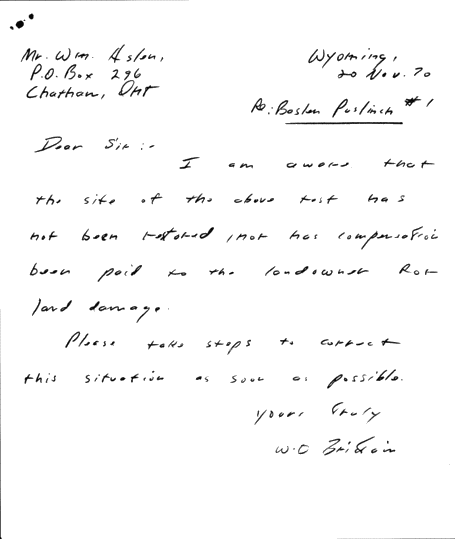 Mr. Wm. Aslen,
P.O. Box 296
Chatham, Ont
Wyoming,
20 Nov. 70
Re: Baslen Puslinch #1
Dear Sir :-
I am aware that
the site of the above test has
not been restored, nor has compensation
been paid to the landowner for
land damage.
Please take steps to correct
this situation as soon as possible.
Yours truly
W.O Britain